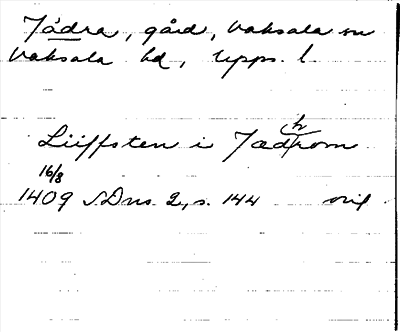 Jädra, gård, Vaksala sn
Vaksala hd, Upps. l.
Lüffsten i Jædhrom
16/8
1409 SDns 2, s. 144 orig